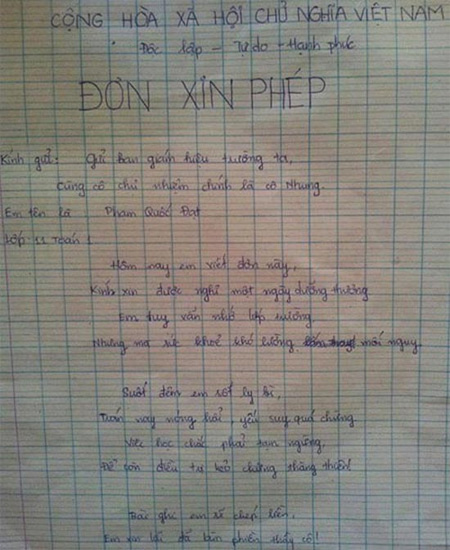 CỘNG HÒA XÃ HỘI CHỦ NGHĨA VIỆT NAM
Độc lập - Tự do - Hạnh phúc
ĐƠN XIN PHÉP
Kính gửi: Gửi ban giám hiệu trường ta,
Cùng cô chủ nhiệm chính là cô Nhung.
Em tên là: Phạm Quốc Đạt
Lớp 11 Toán 1
Hôm nay em viết đơn này,
Kính xin được nghỉ một ngày dưỡng thương
Em tuy vẫn nhớ lớp trường
Nhưng mà sức khoẻ khó lường mối nguy.
Suốt đêm em sốt ly bì,
Trán này nóng hổi, yếu suy quá chừng
Việc học chắc phải tạm ngừng,
Để còn điều trị kẻo chừng thăng thiên!
Bài ghi em sẽ chép liền,
Em xin lỗi đã làm phiền thầy cô!